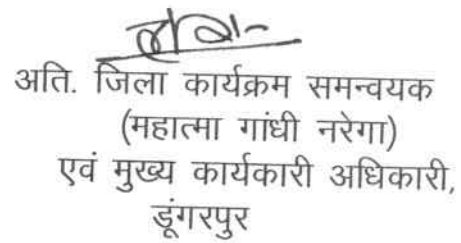 अति. जिला कार्यक्रम समन्वयक
(महात्मा गांधी नरेगा)
एवं मुख्य कार्यकारी अधिकारी,
डूंगरपुर